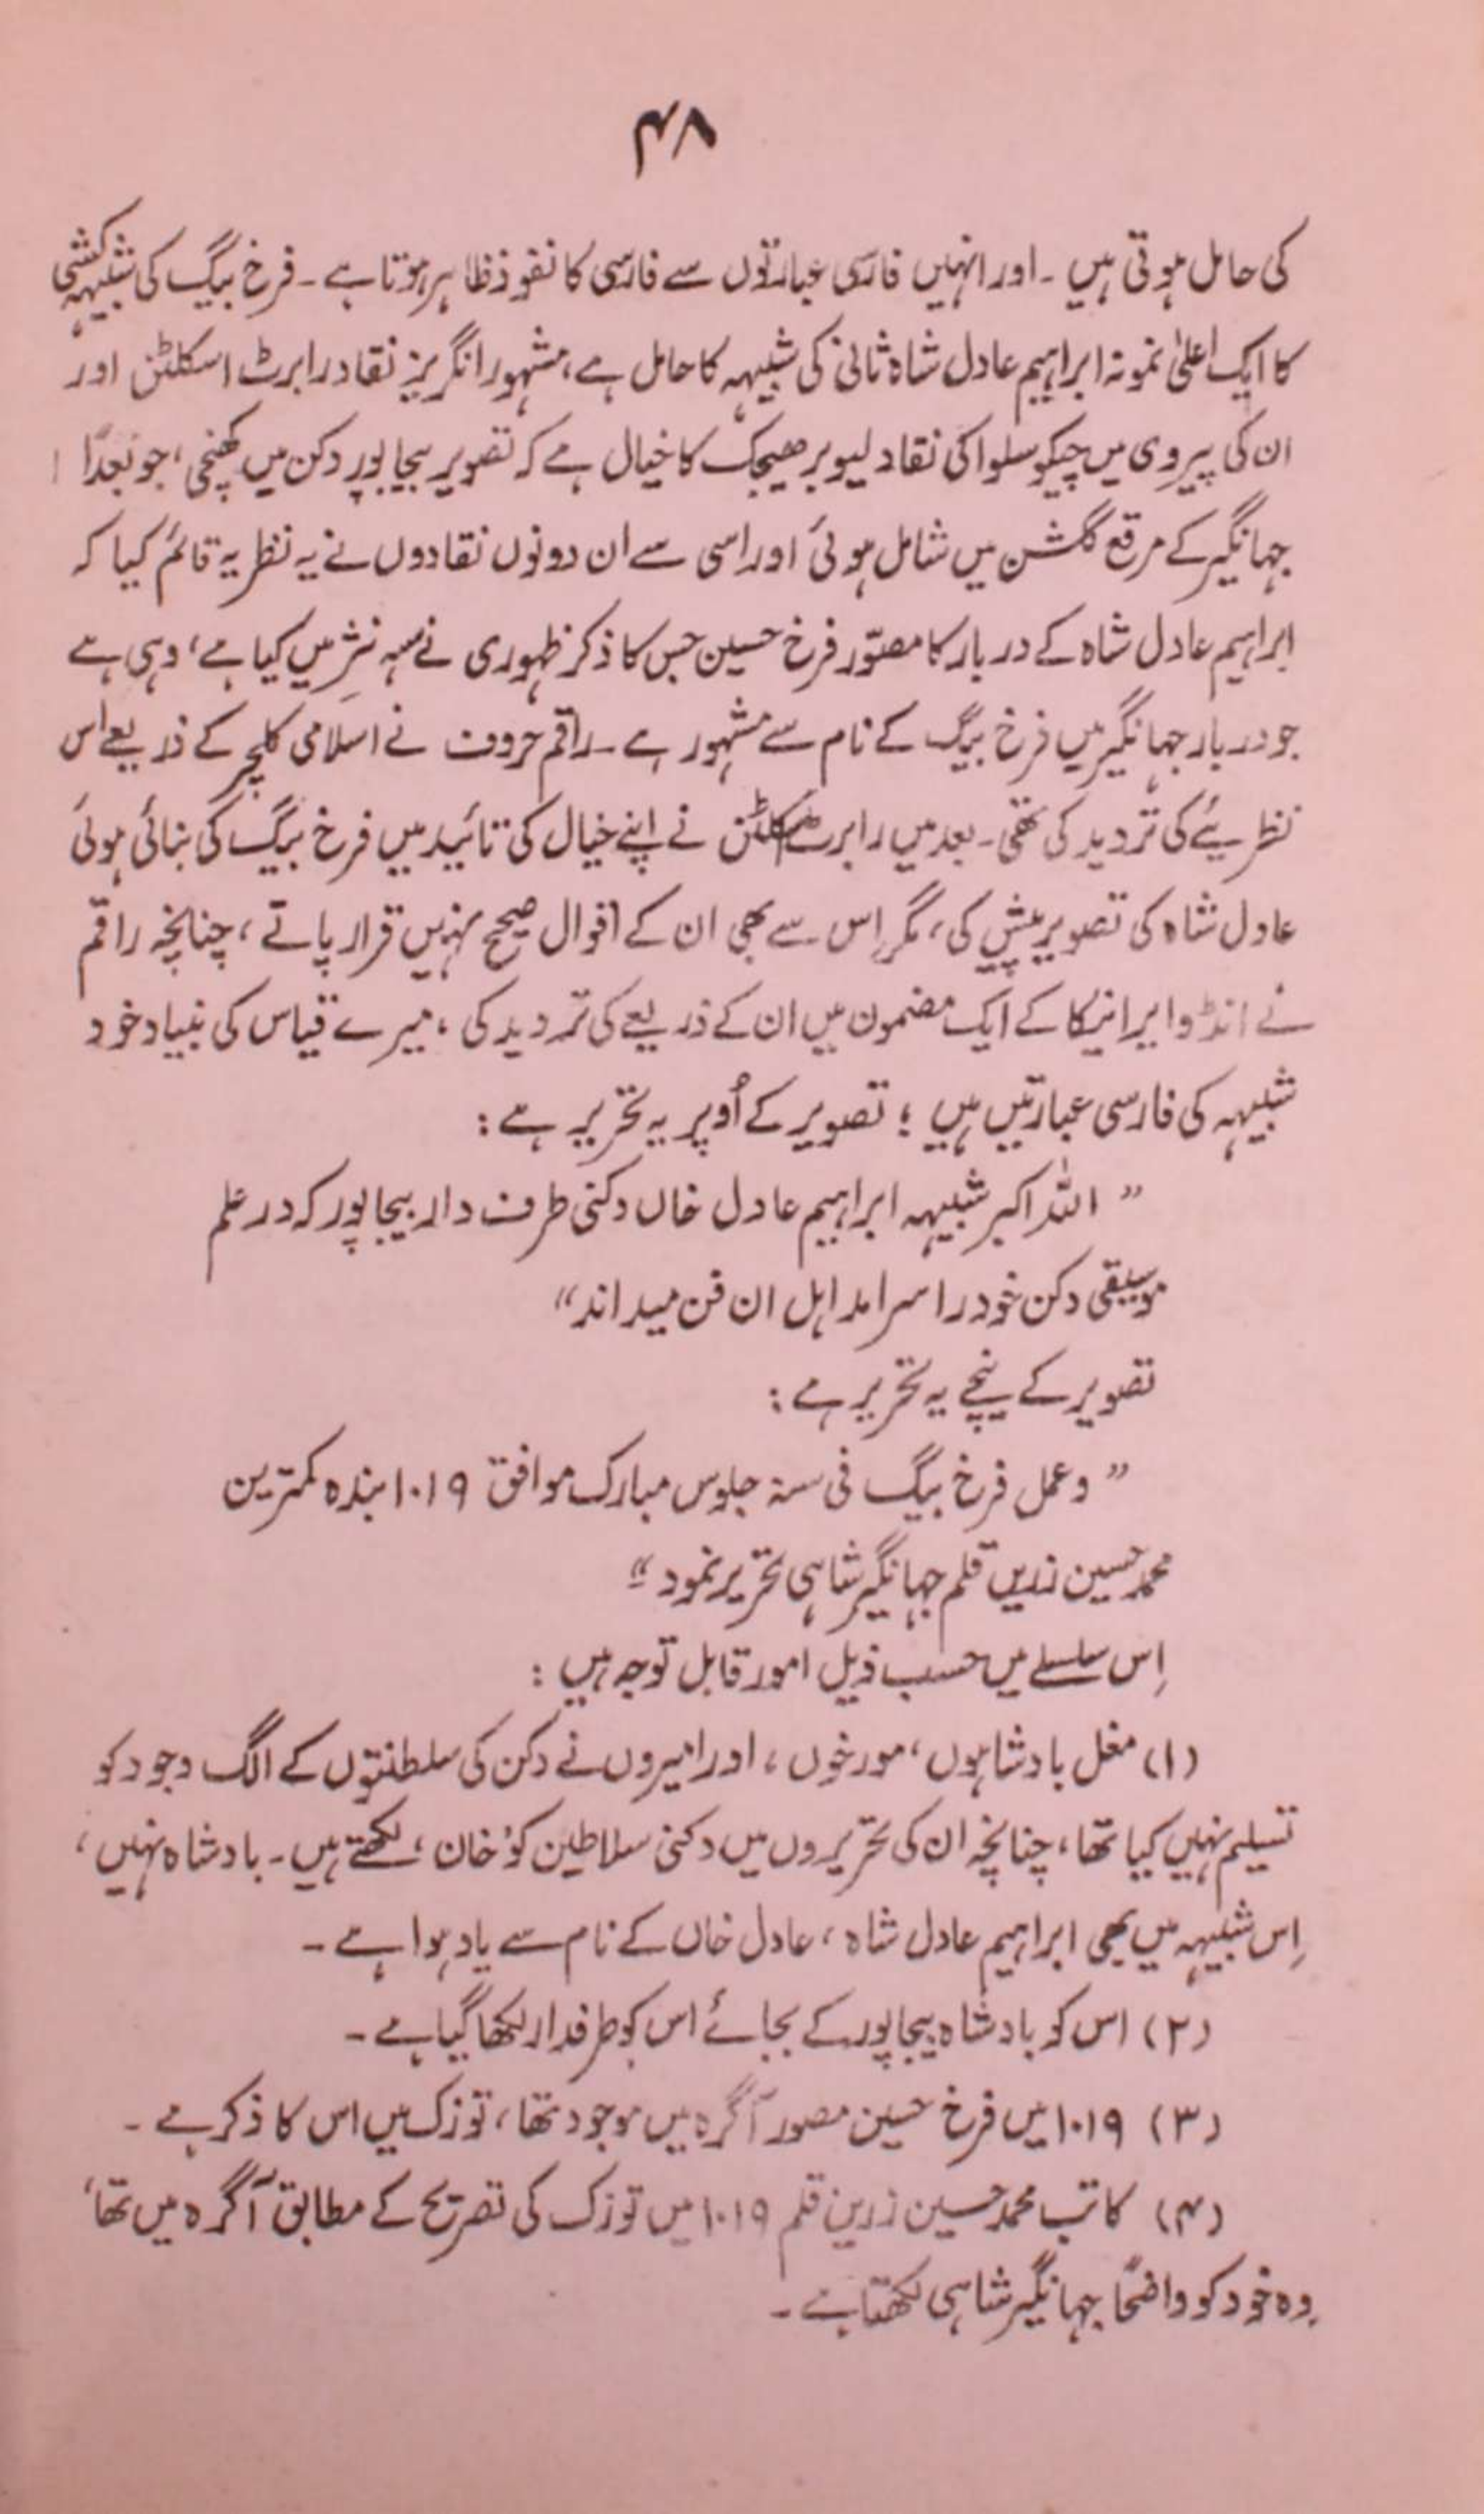 ۴۸
کی حامل ہوتی ہیں ۔ اور انہیں فارسی عبارتوں سے فارسی کا نفوذ ظاہر ہوتا ہے ۔ فرخ بیگ کی شبیہہ کشی
کا ایک اعلیٰ نمونہ ابراہیم عادل شاہ ثانی کی شبیہہ کا حامل ہے، مشہور انگریز نقاد رابرٹ اسکلٹن اور
ان کی پیروی میں چیکوسلواکی نقاد لیوبر ھیجک کا خیال ہے کہ تصویر بیجاپور دکن میں کھنچی، جو بعداً
جہانگیر کے مرقع گلشن میں شامل ہوئی اور اسی سے ان دونوں نقادوں نے یہ نظریہ قائم کیا کہ
ابراہیم عادل شاہ کے دربار کا مصوّر فرخ حسین جس کا ذکر ظہوری نے سہ نثر میں کیا ہے، وہی ہے
جو دربار جہانگیر میں فرخ بیگ کے نام سے مشہور ہے ۔ راقم حروف نے اسلامی کلچر کے ذریعے اس
نظریئے کی تردید کی تھی ۔ بعد میں رابرٹ اسکلٹن نے اپنے خیال کی تائید میں فرخ بیگ کی بنائی ہوئی
عادل شاہ کی تصویر پیش کی، مگر اِس سے بھی ان کے اقوال صحیح نہیں قرار پاتے، چنانچہ راقم
نے انڈو ایرانیکا کے ایک مضمون میں ان کے ذریعے کی تردید کی، میرے قیاس کی بنیاد خود
شبیہہ کی فارسی عبارتیں ہیں ؛ تصویر کے اُوپر یہ تحریر ہے :
” اللہ اکبر شبیہہ ابراہیم عادل خاں دکنی طرف دار بیجاپور کہ در علم
موسیقی دکن خود را سرامد اہل ان فن میداند“
تصویر کے نیچے یہ تحریر ہے :
” وعمل فرخ بیگ فی سنہ جلوس مبارک موافق ۱۰۱۹ بندہ کمترین
محمد حسین زریں قلم جہانگیر شاہی تحریر نمود “
اِس سلسلے میں حسب ذیل امور قابل توجہ ہیں :
(۱) مغل بادشاہوں، مورخوں، اور امیروں نے دکن کی سلطنتوں کے الگ وجود کو
تسلیم نہیں کیا تھا، چنانچہ ان کی تحریروں میں دکنی سلاطین کو ’خان‘ لکھتے ہیں ۔ بادشاہ نہیں،
اِس شبیہہ میں بھی ابراہیم عادل شاہ، عادل خاں کے نام سے یاد ہوا ہے ۔
(۲) اس کو بادشاہ بیجاپور کے بجائے اس کو طرفدار لکھا گیا ہے ۔
(۳) ۱۰۱۹ میں فرخ حسین مصور آگرہ میں موجود تھا، توزک میں اس کا ذکر ہے ۔
(۴) کاتب محمد حسین زرین قلم ۱۰۱۹ میں توزک کی تصریح کے مطابق آگرہ میں تھا،
وہ خود کو واضحاً جہانگیر شاہی لکھتا ہے ۔